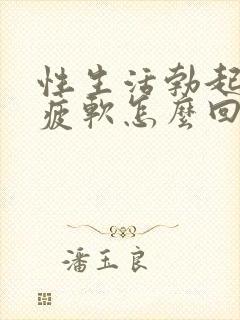 性生活勃起
疲軟怎麼回
潘玉良